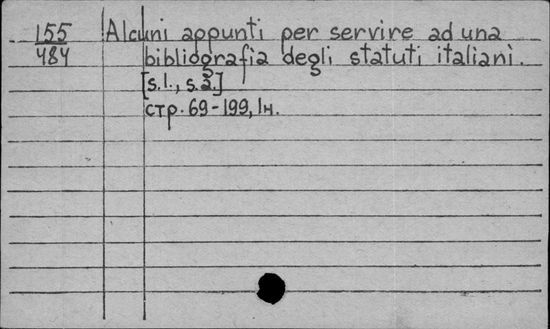 155
484
Alcuni appunti per servire ad una
bibliografia degli statuti italiani.
[s.l., s.a.]
стр. 69-199, 1н.